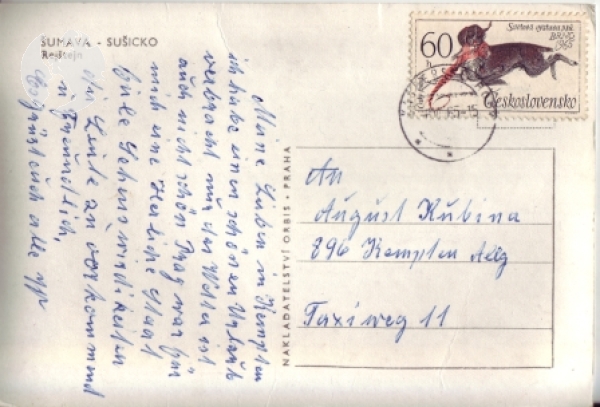 ŠUMAVA - SUŠICKO
Rejštejn
Meine Lieben in Kempten
ich habe einen schönen Urlaub
verbracht nur das Wetter ist
auch nicht schön Prag war für
mich eine Herliche Staat
viele Sehenswürdikeiten
die Leute zu vorkommend
u. freundlich,
Es grüst euch alle
NAKLADATELSTVÍ ORBIS · PRAHA
60 h
Světová výstava psů
BRNO
1965
Československo
An
August Rubina
896 Kempten Allg
Taxiweg 11